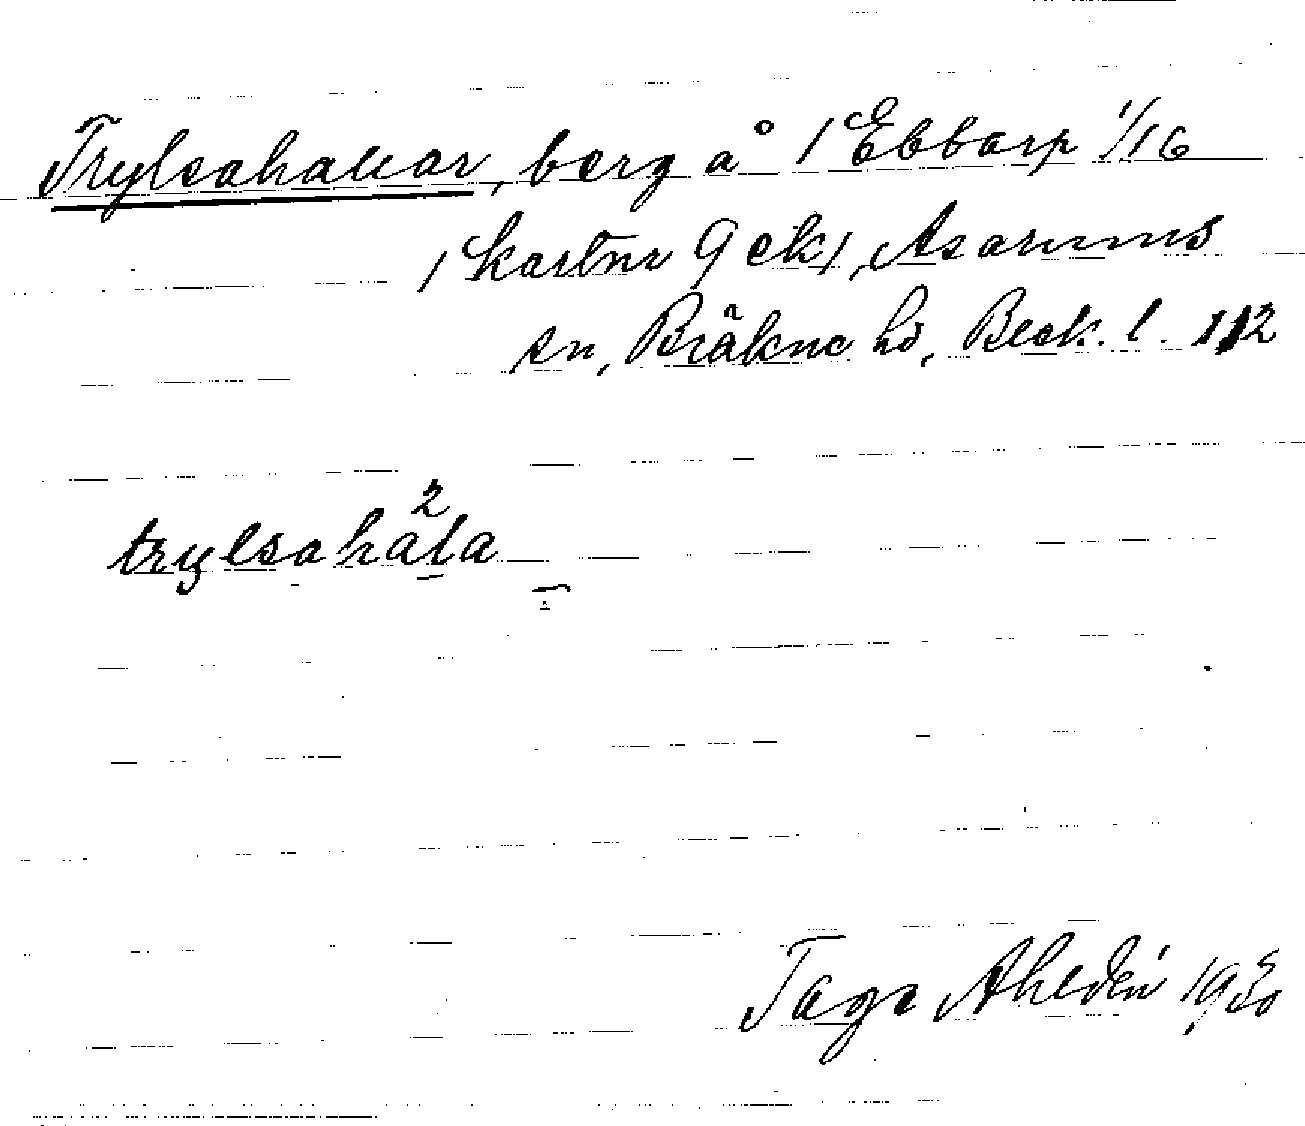 Trylsahallar, berg å /Ebbarp 1/16
/kartnr 9 ek/, Asarums
sn, Bräkne hd, Blek. l. 112
trylsahala 2
Tage Ahldén 1950